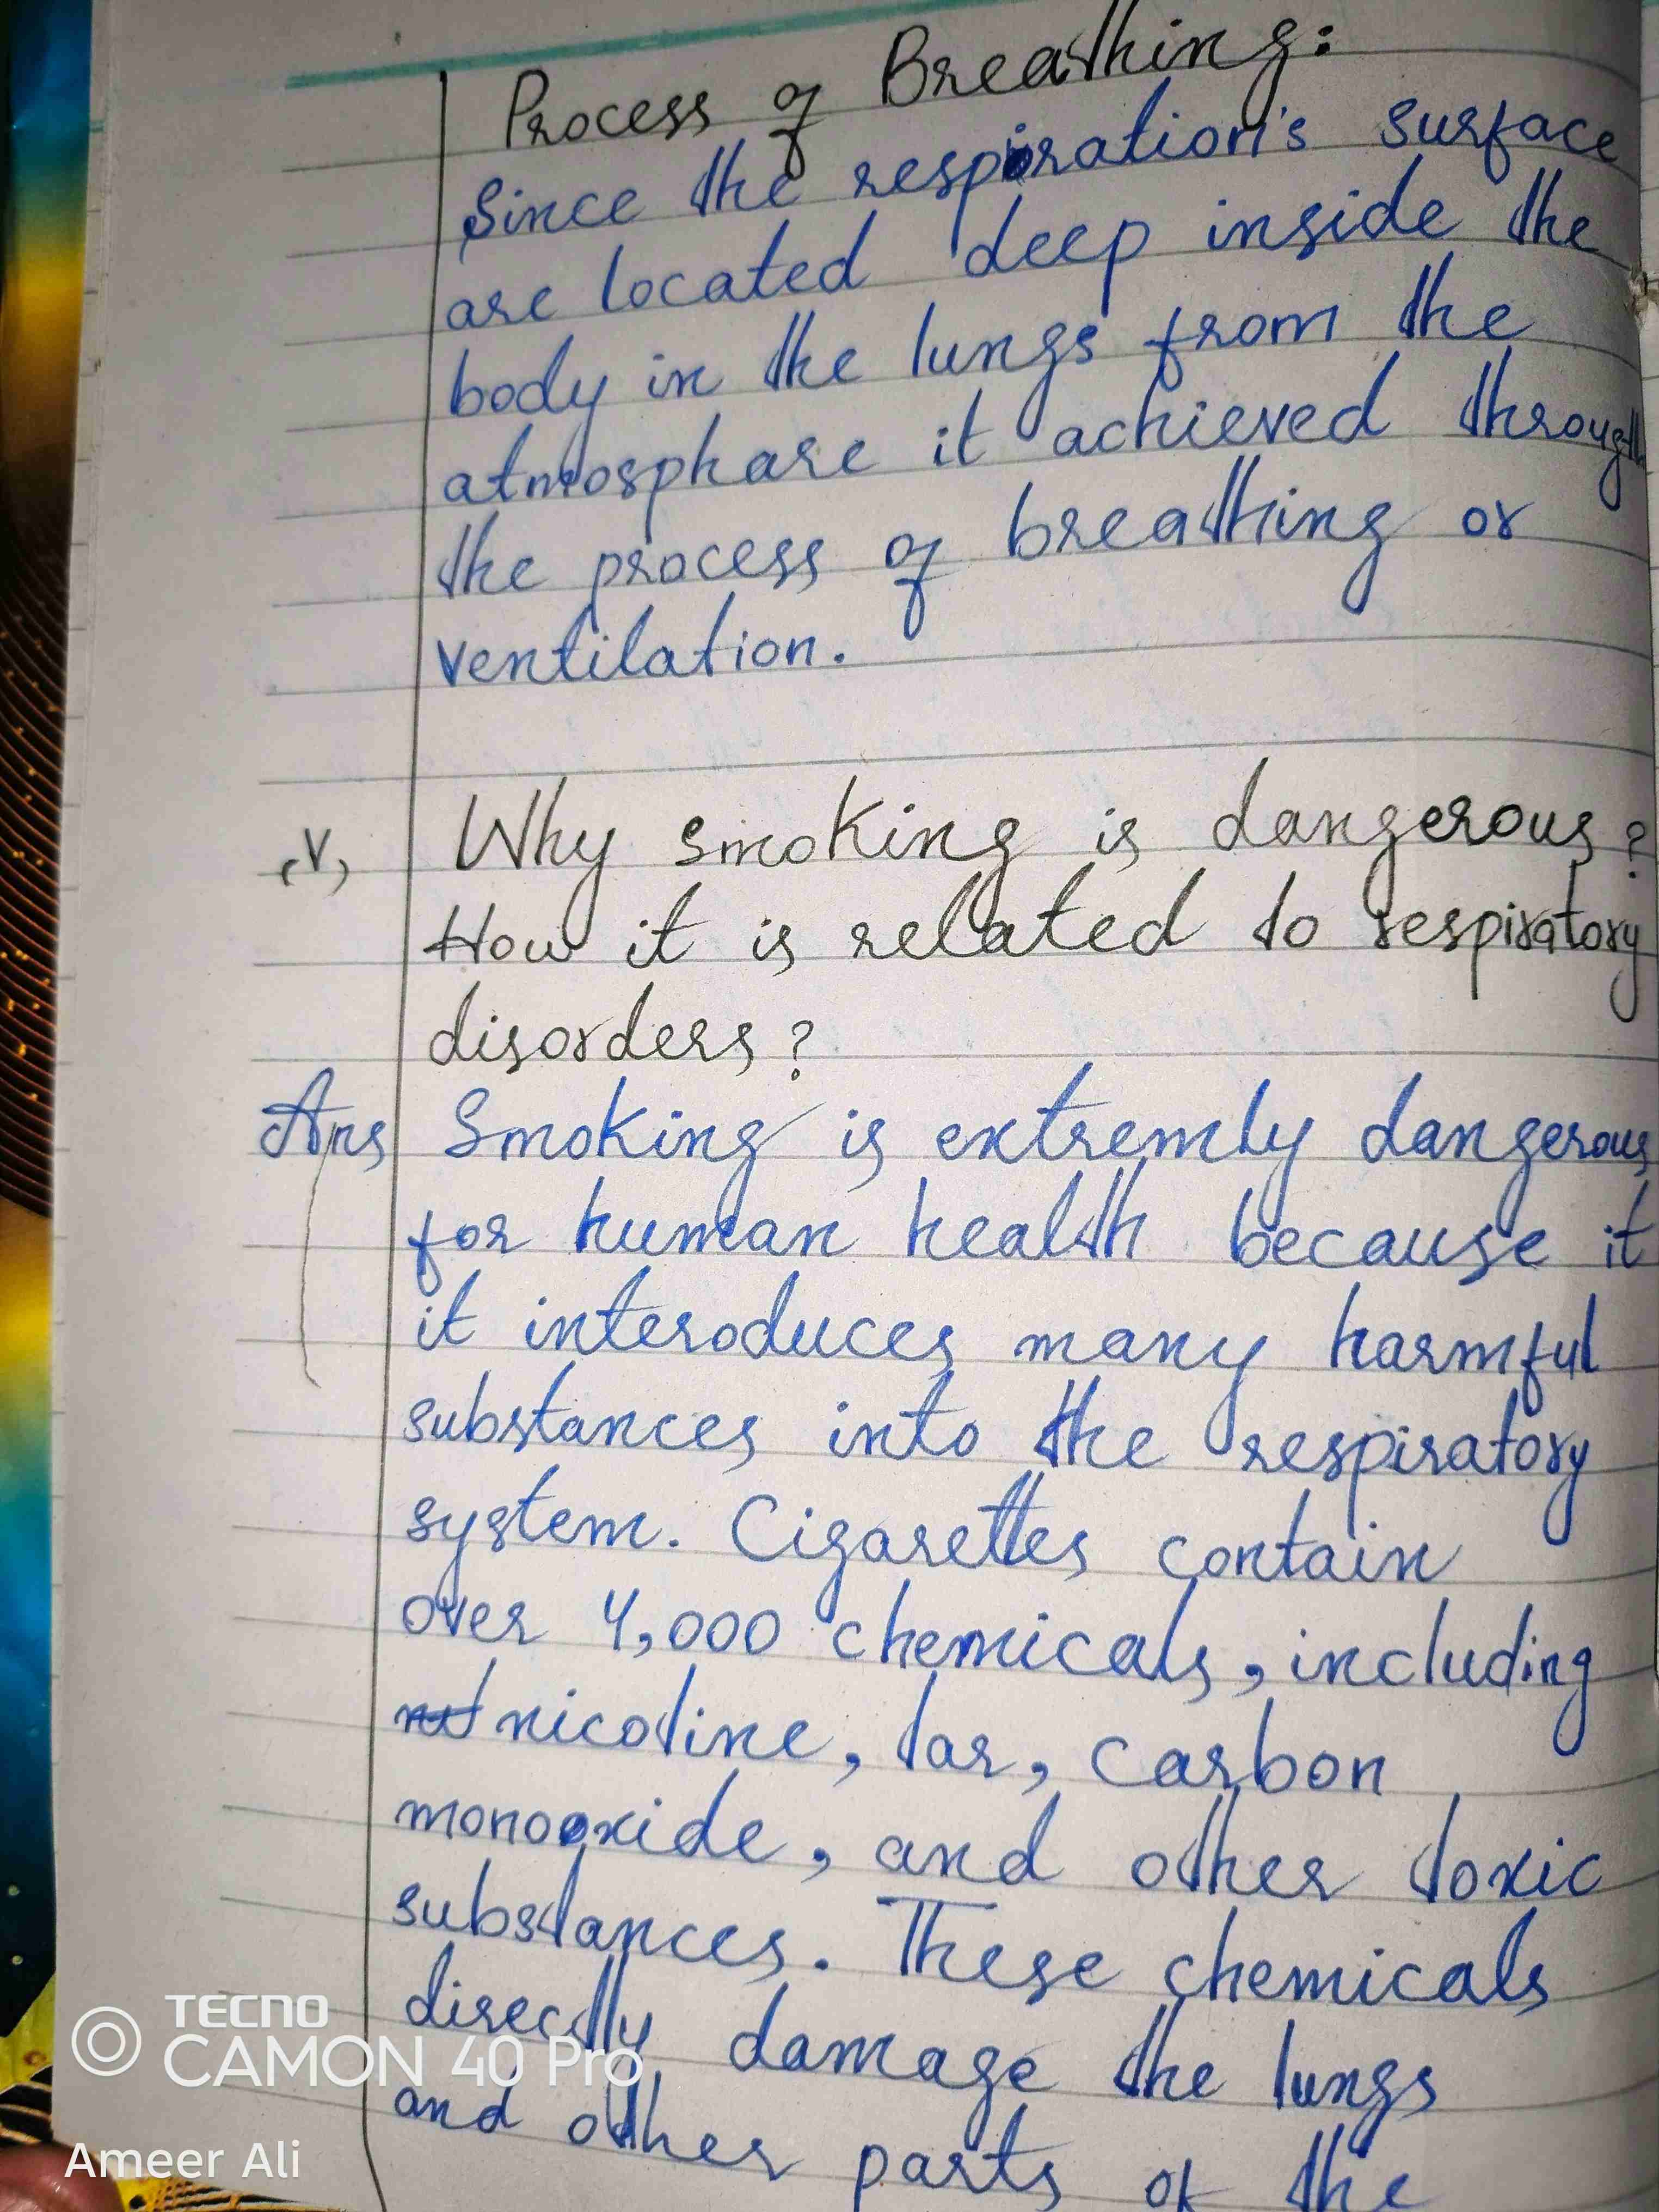 Process of Breathing:
Since the respiration's surface
are located deep inside the
body in the lungs from the
atmosphare it achieved through
the process of breathing or
ventilation.
(V) Why smoking is dangerous?
How it is related to respiratory
disorders?
Ans Smoking is extremly dangerous
for human health because it
it interoduces many harmful
substances into the respiratory
system. Cigarettes contain
over 4,000 chemicals, including
nicotine, tar, carbon
monooxide, and other toxic
substances. These chemicals
directly damage the lungs
and other parts of the
TECNO
CAMON 40 Pro
Ameer Ali